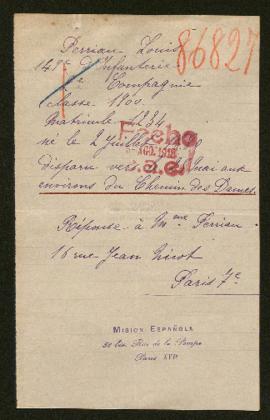 Perrian Louis
86827
149e d'Infanterie
Compagnie
classe 1900.
Matricule 1234
né le 2 Juillet
Fecho
AGO. 1918
disparu vers Mai aux
environs du Chemin des Dames.
Réponse à Mme Perrian
16 rue Jean Nicot
Paris 7e
MISION ESPAÑOLA
51 bis. Rue de la Pompe
Paris XVI